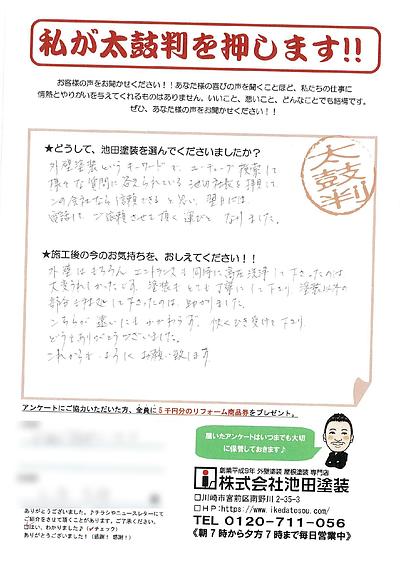 私が太鼓判を押します!!
お客様の声をお聞かせください！！あなた様の喜びの声を聞くことほど、私たちの仕事に
情熱とやりがいを与えてくれるものはありません。いいこと、悪いこと、どんなことでも結構です。
ぜひ、あなた様の声をお聞かせください！！
★どうして、池田塗装を選んでくださいましたか?
太鼓判
外壁塗装というキーワードで、ユーチューブ検索して
様々な質問に答えられている池田社長を拝見して
この会社なら信頼できると思い、翌日には
電話して、ご依頼させて頂く運びとなりました。
★施工後の今のお気持ちを、おしえてください!!
外壁はもちろん エントランスも同時に高圧洗浄して下さったのは
大変うれしかったです。塗装もとても丁寧にして下さり 塗装以外の
部分も対処して下さったのは、助かりました。
こちらが遠いにもかかわらず、快くひき受けて下さり
どうもありがとうございました。
これからも よろしくお願い致します
アンケートにご協力いただいた方、全員に5千円分のリフォーム商品券をプレゼント。
届いたアンケートはいつまでも大切
に保管しておきます♪
ありがとうございました。♪チラシやニュースレターにて
ご紹介をさせて頂くことがあります。ご了承ください。
はい、わかりました♪(✓チェック)
ありがとうございました！(感謝！感謝！)
創業平成9年 外壁塗装 屋根塗装 専門店
株式会社池田塗装
□川崎市宮前区南野川2-35-3
□HP:https://www.ikedatosou.com/
TEL 0120-711-056
《朝7時から夕方7時まで毎日営業中》